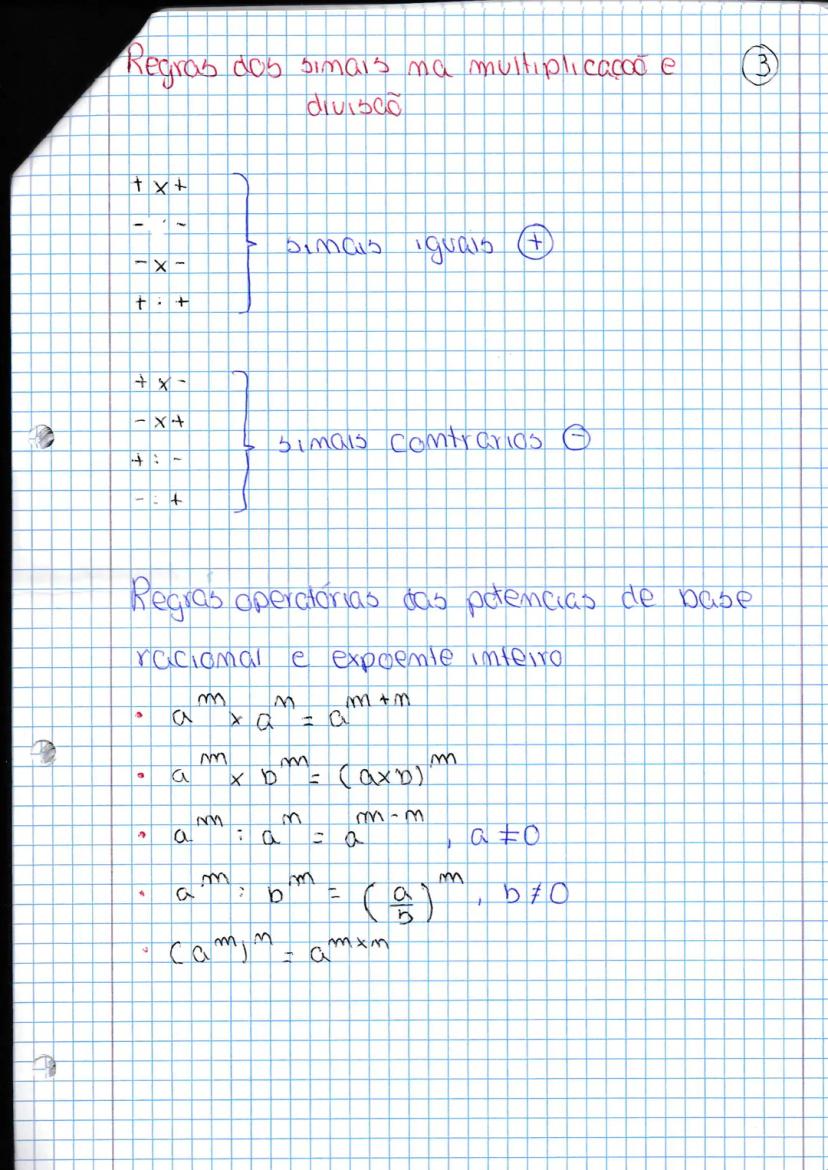 Regras dos sinais na multiplicação e
③
divisão
+ x +
- : -
- x -
+ : +
sinais iguais ⊕
+ x -
- x +
+ : -
- : +
sinais contrarios ⊖
Regras operatórias das potencias de base
racional e expoente inteiro
• a^m x a^n = a^(m+n)
• a^m x b^m = (axb)^m
• a^m : a^n = a^(m-n) , a ≠ 0
• a^m : b^m = (a/b)^m , b ≠ 0
• (a^m)^n = a^(mxn)